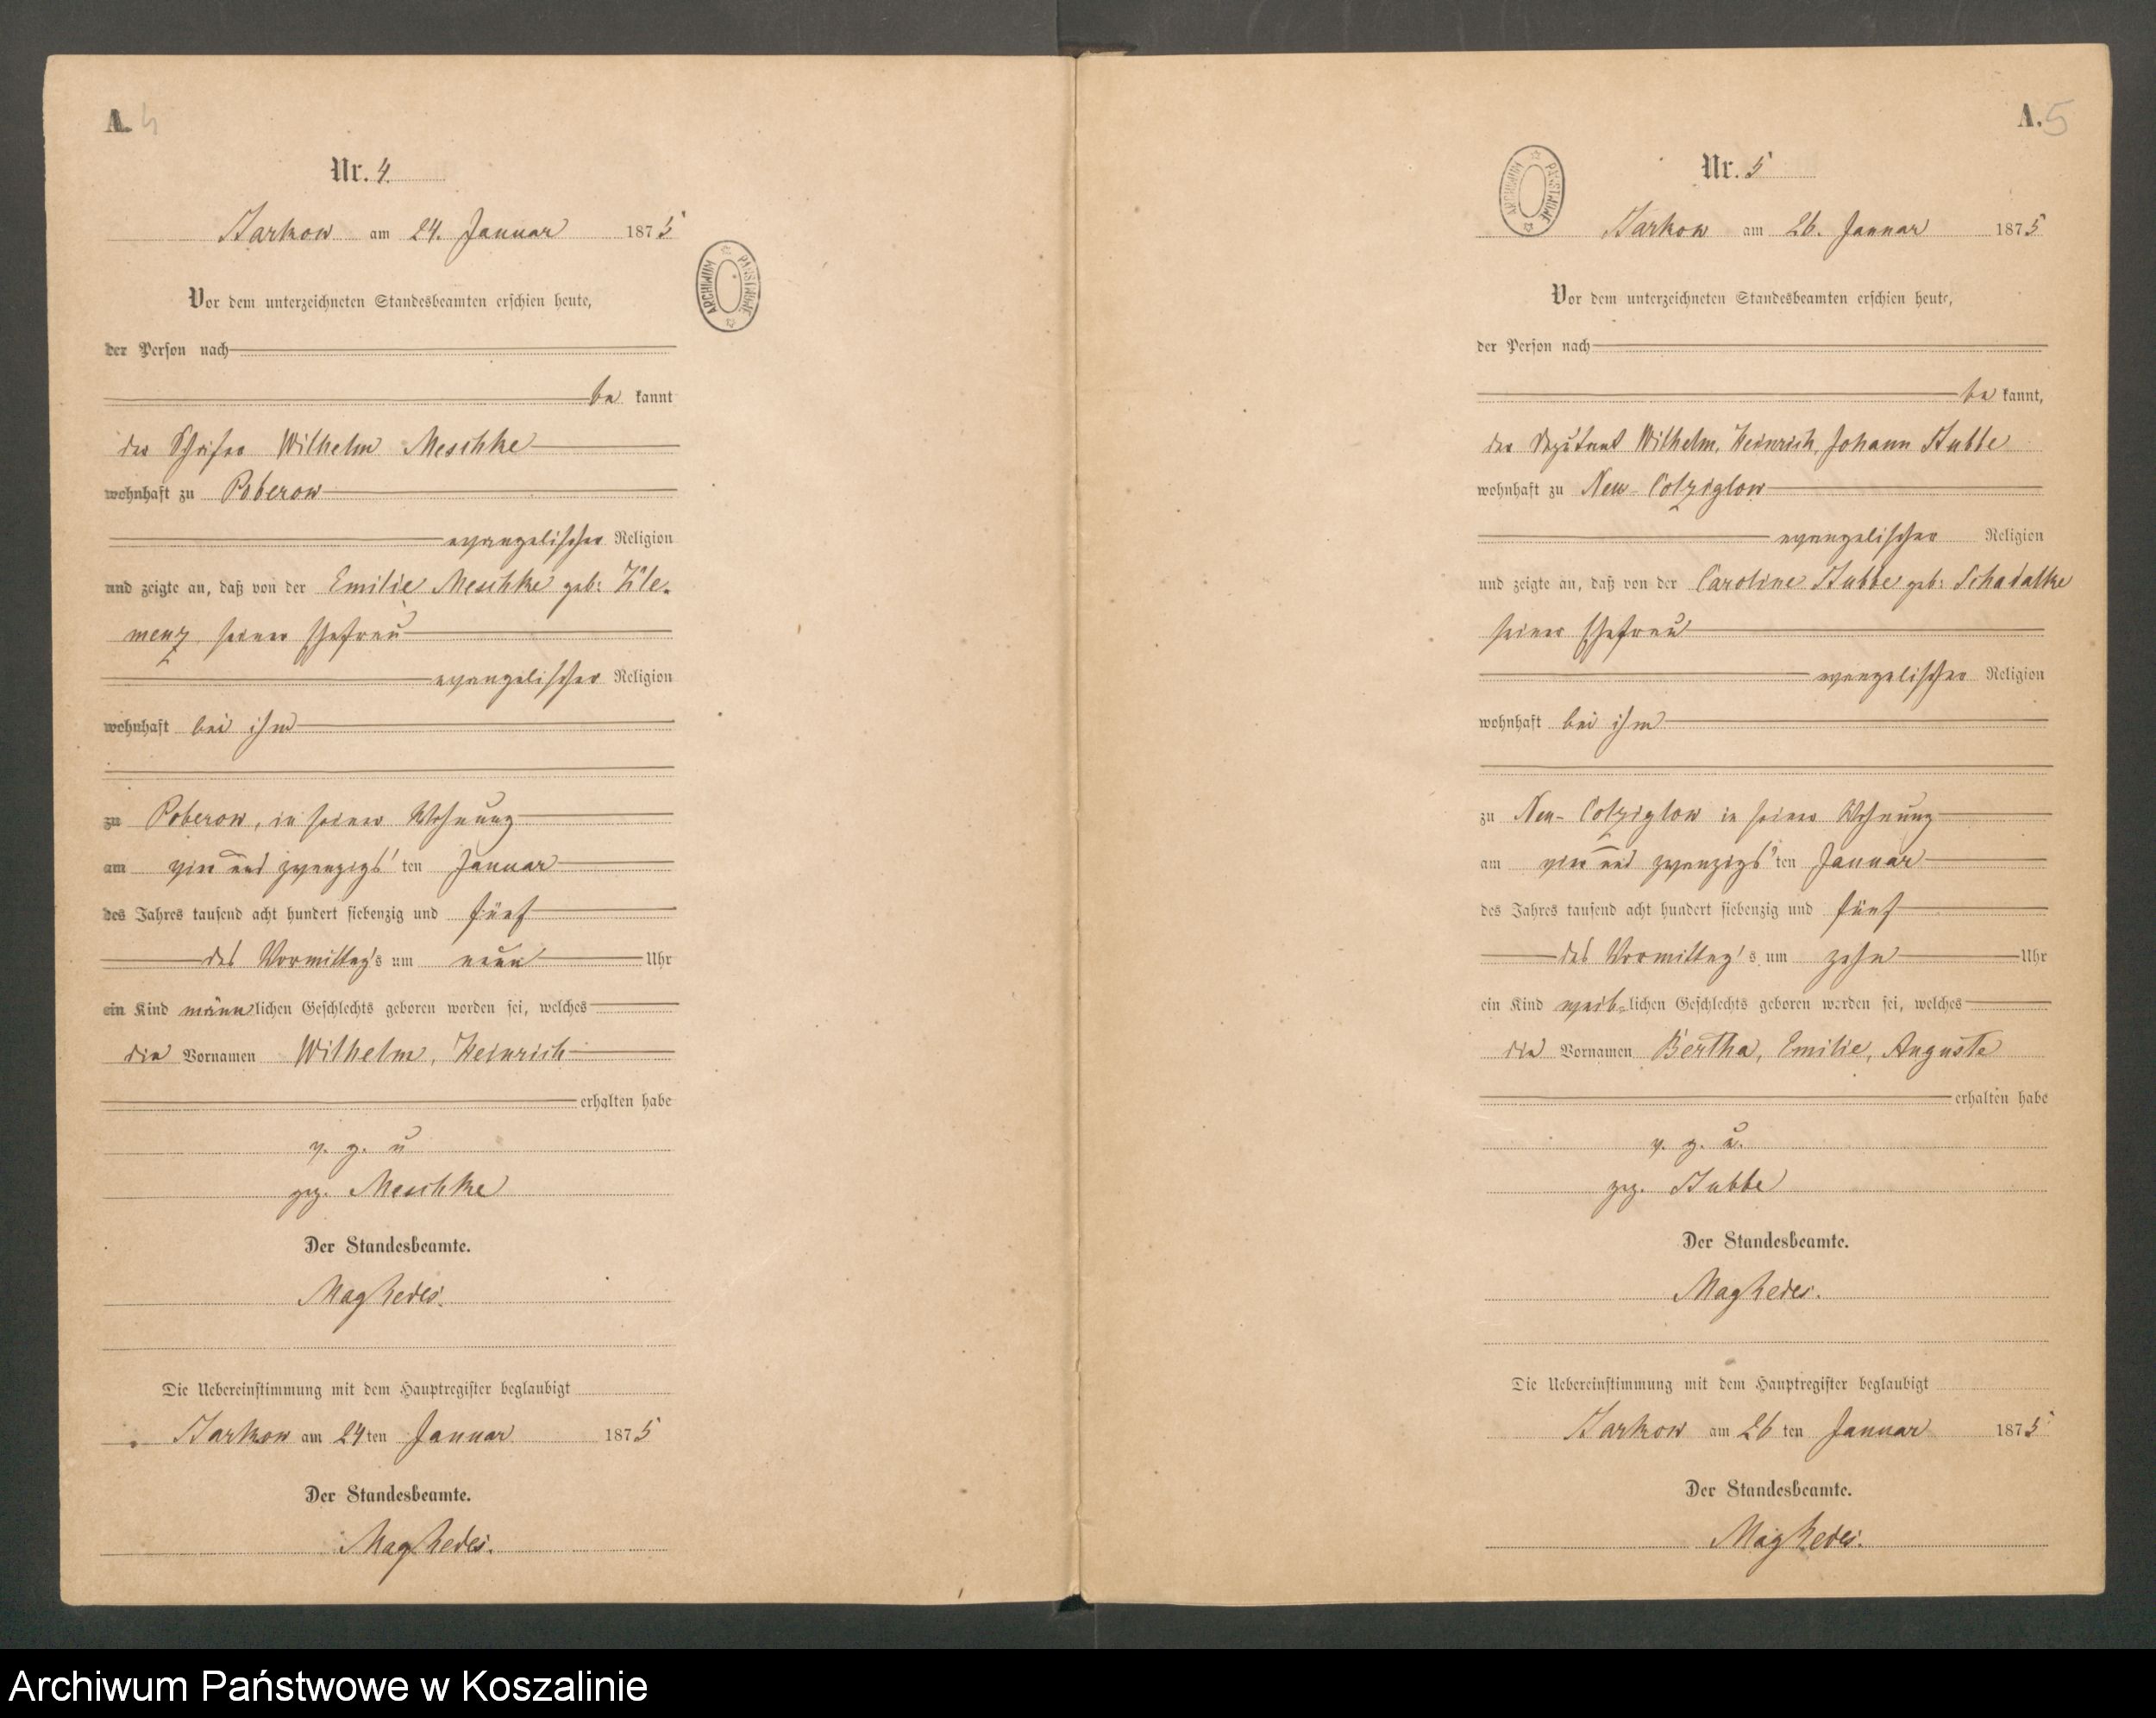 A. 4
Nr. 4.
Barkow am 24. Januar 1875
ARCHIWUM PAŃSTWOWE
Vor dem unterzeichneten Standesbeamten erschien heute,
der Person nach
be kannt
der Schäfer Wilhelm Meschke
wohnhaft zu Poberow
evangelischer Religion
und zeigte an, daß von der Emilie Meschke geb: Kle-
menz seiner Ehefrau
evangelischer Religion
wohnhaft bei ihm
zu Poberow, in seiner Wohnung
am vier und zwanzigs' ten Januar
des Jahres tausend acht hundert siebenzig und fünf
des Vormittag's um neun Uhr
ein Kind männlichen Geschlechts geboren worden sei, welches
die Vornamen Wilhelm, Heinrich
erhalten habe
v. g. u
gez. Meschke
Der Standesbeamte.
Die Uebereinstimmung mit dem Hauptregister beglaubigt
Barkow am 24ten Januar 1875
Der Standesbeamte.
A. 5
Nr. 5
ARCHIWUM PAŃSTWOWE
Barkow am 26. Januar 1875
Vor dem unterzeichneten Standesbeamten erschien heute,
der Person nach
be kannt,
der Deputant Wilhelm, Heinrich, Johann Stubbe
wohnhaft zu Neu-Colziglow
evangelischer Religion
und zeigte an, daß von der Caroline Stubbe geb: Schadatke
seiner Ehefrau
evangelischer Religion
wohnhaft bei ihm
zu Neu-Colziglow in seiner Wohnung
am vier und zwanzigs' ten Januar
des Jahres tausend acht hundert siebenzig und fünf
des Vormittag's um zehn Uhr
ein Kind weib-lichen Geschlechts geboren worden sei, welches
die Vornamen Bertha, Emilie, Auguste
erhalten habe
v. g. u.
gez. Stubbe
Der Standesbeamte.
Die Uebereinstimmung mit dem Hauptregister beglaubigt
Barkow am 26 ten Januar 1875
Der Standesbeamte.
Archiwum Państwowe w Koszalinie